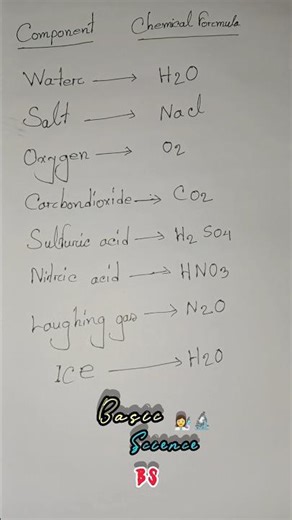 Component Chemical Formula
Water → H2O
Salt → Nacl
Oxygen → O2
Carbondioxide → CO2
Sulfuric acid → H2SO4
Nitric acid → HNO3
Laughing gas → N2O
ICE → H2O
Basic
Science
BS